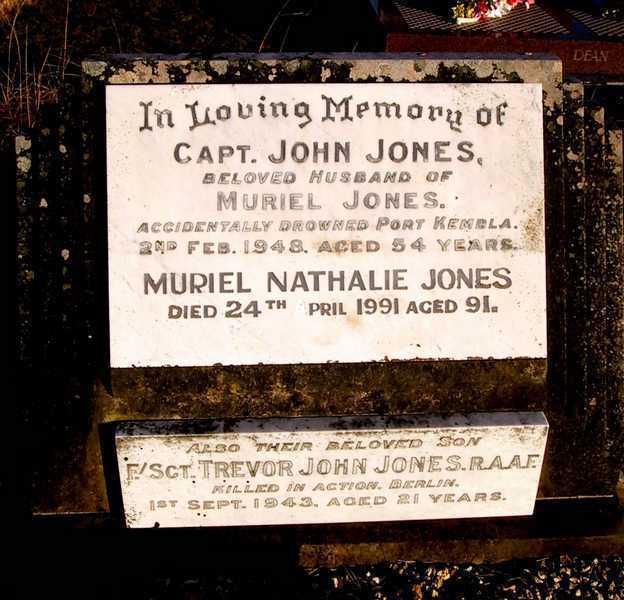 DEAN
In Loving Memory of
CAPT. JOHN JONES,
BELOVED HUSBAND OF
MURIEL JONES.
ACCIDENTALLY DROWNED PORT KEMBLA.
2ND FEB. 1948. AGED 54 YEARS.
MURIEL NATHALIE JONES
DIED 24TH PRIL 1991 AGED 91.
ALSO THEIR BELOVED SON
F/SGT. TREVOR JOHN JONES. R.A.A.F.
KILLED IN ACTION. BERLIN.
1ST SEPT. 1943. AGED 21 YEARS.